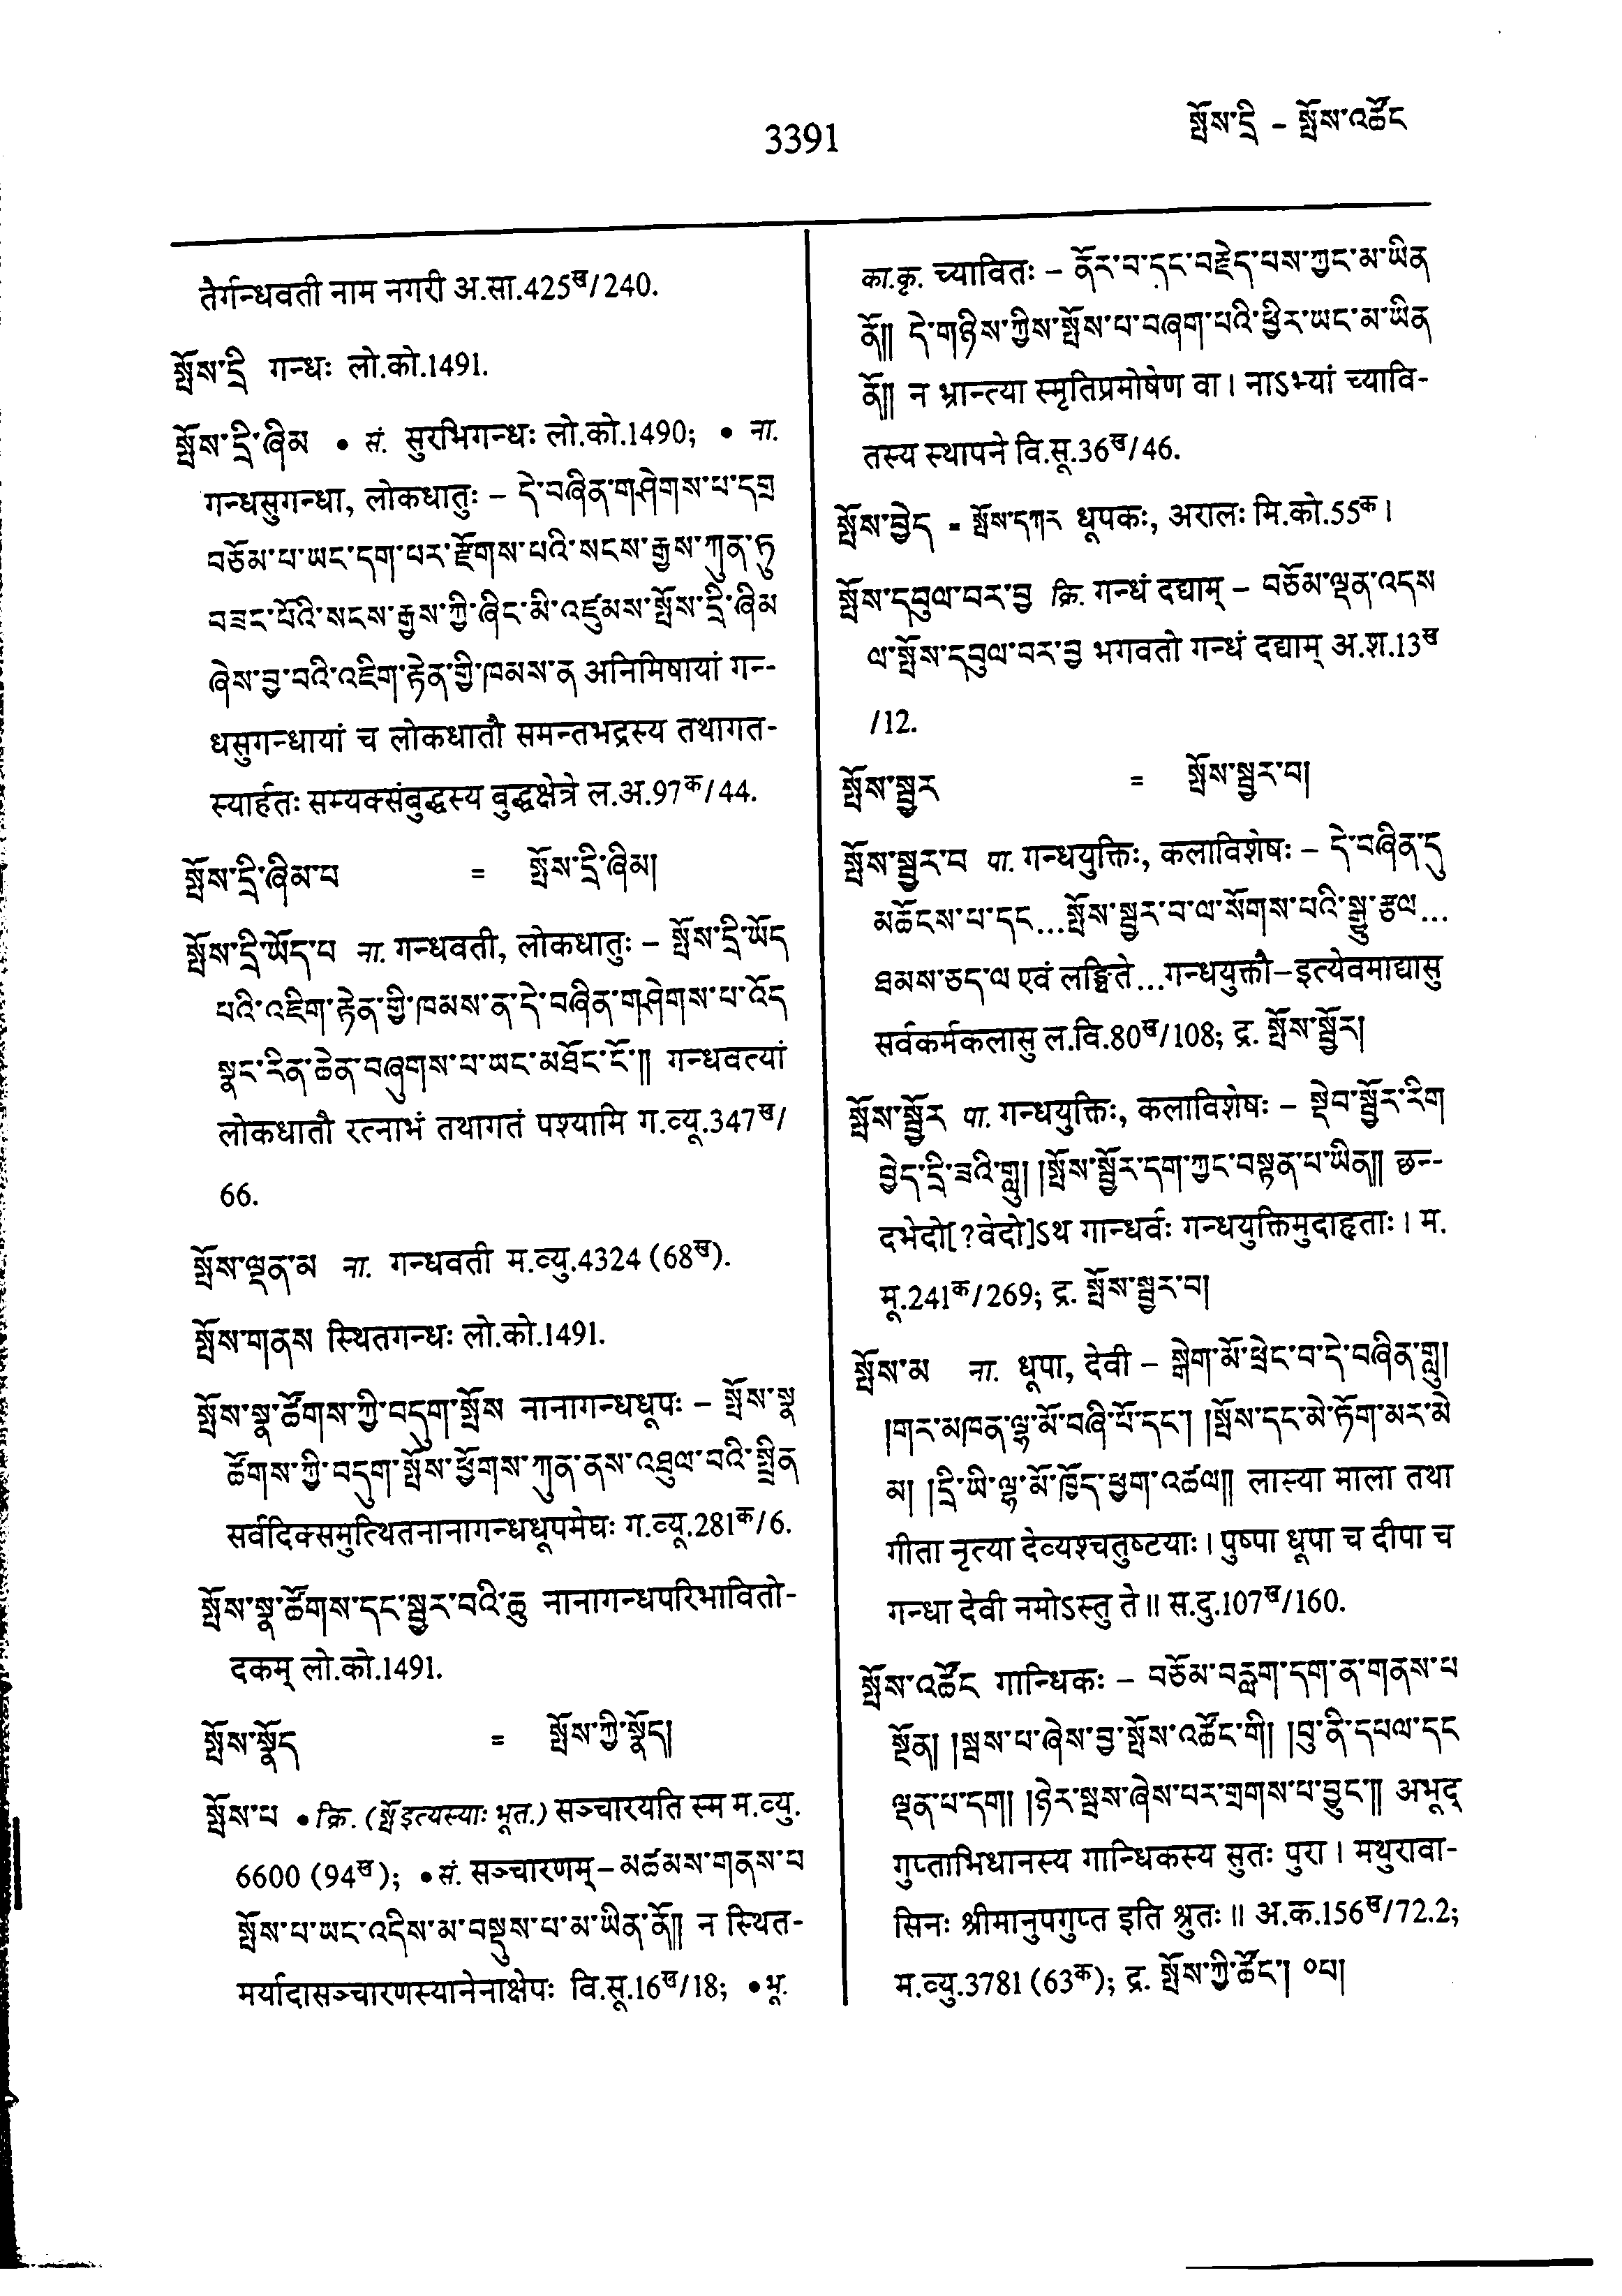 3391
སྤོས་དྲི – སྤོས་འཚོང
तैर्गन्धवती नाम नगरी अ.सा.425ख/240.
སྤོས་དྲི गन्धः लो.को.1491.
སྤོས་དྲི་ཞིམ • सं. सुरभिगन्धः लो.को.1490; • ना.
गन्धसुगन्धा, लोकधातुः – དེ་བཞིན་གཤེགས་པ་དགྲ
བཅོམ་པ་ཡང་དག་པར་རྫོགས་པའི་སངས་རྒྱས་ཀུན་ཏུ
བཟང་པོའི་སངས་རྒྱས་ཀྱི་ཞིང་མི་འཛུམས་སྤོས་དྲི་ཞིམ
ཞེས་བྱ་བའི་འཇིག་རྟེན་གྱི་ཁམས་ན अनिमिषायां गन-
धसुगन्धायां च लोकधातौ समन्तभद्रस्य तथागत-
स्यार्हतः सम्यक्संबुद्धस्य बुद्धक्षेत्रे ल.अ.97क/44.
སྤོས་དྲི་ཞིམ་པ = སྤོས་དྲི་ཞིམ།
སྤོས་དྲི་ཡོད་པ ना. गन्धवती, लोकधातुः – སྤོས་དྲི་ཡོད
པའི་འཇིག་རྟེན་གྱི་ཁམས་ན་དེ་བཞིན་གཤེགས་པ་འོད
སྣང་རིན་ཆེན་བཞུགས་པ་ཡང་མཐོང་ངོ་༎ गन्धवत्यां
लोकधातौ रत्नाभं तथागतं पश्यामि ग.व्यू.347ख/
66.
སྤོས་ལྡན་མ ना. गन्धवती म.व्यु.4324 (68ख).
སྤོས་གནས स्थितगन्धः लो.को.1491.
སྤོས་སྣ་ཚོགས་ཀྱི་བདུག་སྤོས नानागन्धधूपः – སྤོས་སྣ
ཚོགས་ཀྱི་བདུག་སྤོས་ཕྱོགས་ཀུན་ནས་འཐུལ་བའི་སྤྲིན
सर्वदिक्समुत्थितनानागन्धधूपमेघः ग.व्यू.281क/6.
སྤོས་སྣ་ཚོགས་དང་སྦྱར་བའི་ཆུ नानागन्धपरिभावितो-
दकम् लो.को.1491.
སྤོས་སྣོད = སྤོས་ཀྱི་སྣོད།
སྤོས་པ • क्रि. (སྤོ इत्यस्याः भूत.) सञ्चारयति स्म म.व्यु.
6600 (94ख); • सं. सञ्चारणम् – མཚམས་གནས་པ
སྤོས་པ་ཡང་འདིས་མ་བསྡུས་པ་མ་ཡིན་ནོ༎ न स्थित-
मर्यादासञ्चारणस्यानेनाक्षेपः वि.सू.16ख/18; • भू.
का.कृ. च्यावितः – ནོར་བ་དང་བརྗེད་པས་ཀྱང་མ་ཡིན
ནོ༎ དེ་གཉིས་ཀྱིས་སྤོས་པ་བཞག་པའི་ཕྱིར་ཡང་མ་ཡིན
ནོ༎ न भ्रान्त्या स्मृतिप्रमोषेण वा। नाऽभ्यां च्यावि-
तस्य स्थापने वि.सू.36ख/46.
སྤོས་བྱེད = སྤོས་དཀར धूपकः, अरालः मि.को.55क।
སྤོས་དབུལ་བར་བྱ क्रि. गन्धं दद्याम् – བཅོམ་ལྡན་འདས
ལ་སྤོས་དབུལ་བར་བྱ भगवतो गन्धं दद्याम् अ.श.13ख
/12.
སྤོས་སྦྱར = སྤོས་སྦྱར་བ།
སྤོས་སྦྱར་བ पा. गन्धयुक्तिः, कलाविशेषः – དེ་བཞིན་དུ
མཆོངས་པ་དང...སྤོས་སྦྱར་བ་ལ་སོགས་པའི་སྒྱུ་རྩལ...
ཐམས་ཅད་ལ एवं लङ्घिते...गन्धयुक्तौ–इत्येवमाद्यासु
सर्वकर्मकलासु ल.वि.80ख/108; द्र. སྤོས་སྦྱོར།
སྤོས་སྦྱོར पा. गन्धयुक्तिः, कलाविशेषः – སྡེབ་སྦྱོར་རིག
བྱེད་དྲི་ཟའི་གླུ། །སྤོས་སྦྱོར་དག་ཀྱང་བསྟན་པ་ཡིན༎ छन-
दभेदो[?वेदो]ऽथ गान्धर्वः गन्धयुक्तिमुदाहृताः। म.
मू.241क/269; द्र. སྤོས་སྦྱར་བ།
སྤོས་མ ना. धूपा, देवी – སྒེག་མོ་ཕྲེང་བ་དེ་བཞིན་གླུ།
།གར་མཁན་ལྷ་མོ་བཞི་པོ་དང་། །སྤོས་དང་མེ་ཏོག་མར་མེ
མ། །དྲི་ཡི་ལྷ་མོ་ཁྱོད་ཕྱག་འཚལ༎ लास्या माला तथा
गीता नृत्या देव्यश्चतुष्टयाः। पुष्पा धूपा च दीपा च
गन्धा देवी नमोऽस्तु ते॥ स.दु.107ख/160.
སྤོས་འཚོང गान्धिकः – བཅོམ་བརླག་དག་ན་གནས་པ
སྔོན། །སྦས་པ་ཞེས་བྱ་སྤོས་འཚོང་གི། །བུ་ནི་དཔལ་དང
ལྡན་པ་དག། །ཉེར་སྦས་ཞེས་པར་གྲགས་པ་བྱུང༎ अभूद्
गुप्ताभिधानस्य गान्धिकस्य सुतः पुरा। मथुरावा-
सिनः श्रीमानुपगुप्त इति श्रुतः॥ अ.क.156ख/72.2;
म.व्यु.3781 (63क); द्र. སྤོས་ཀྱི་ཚོང་། ༠པ།